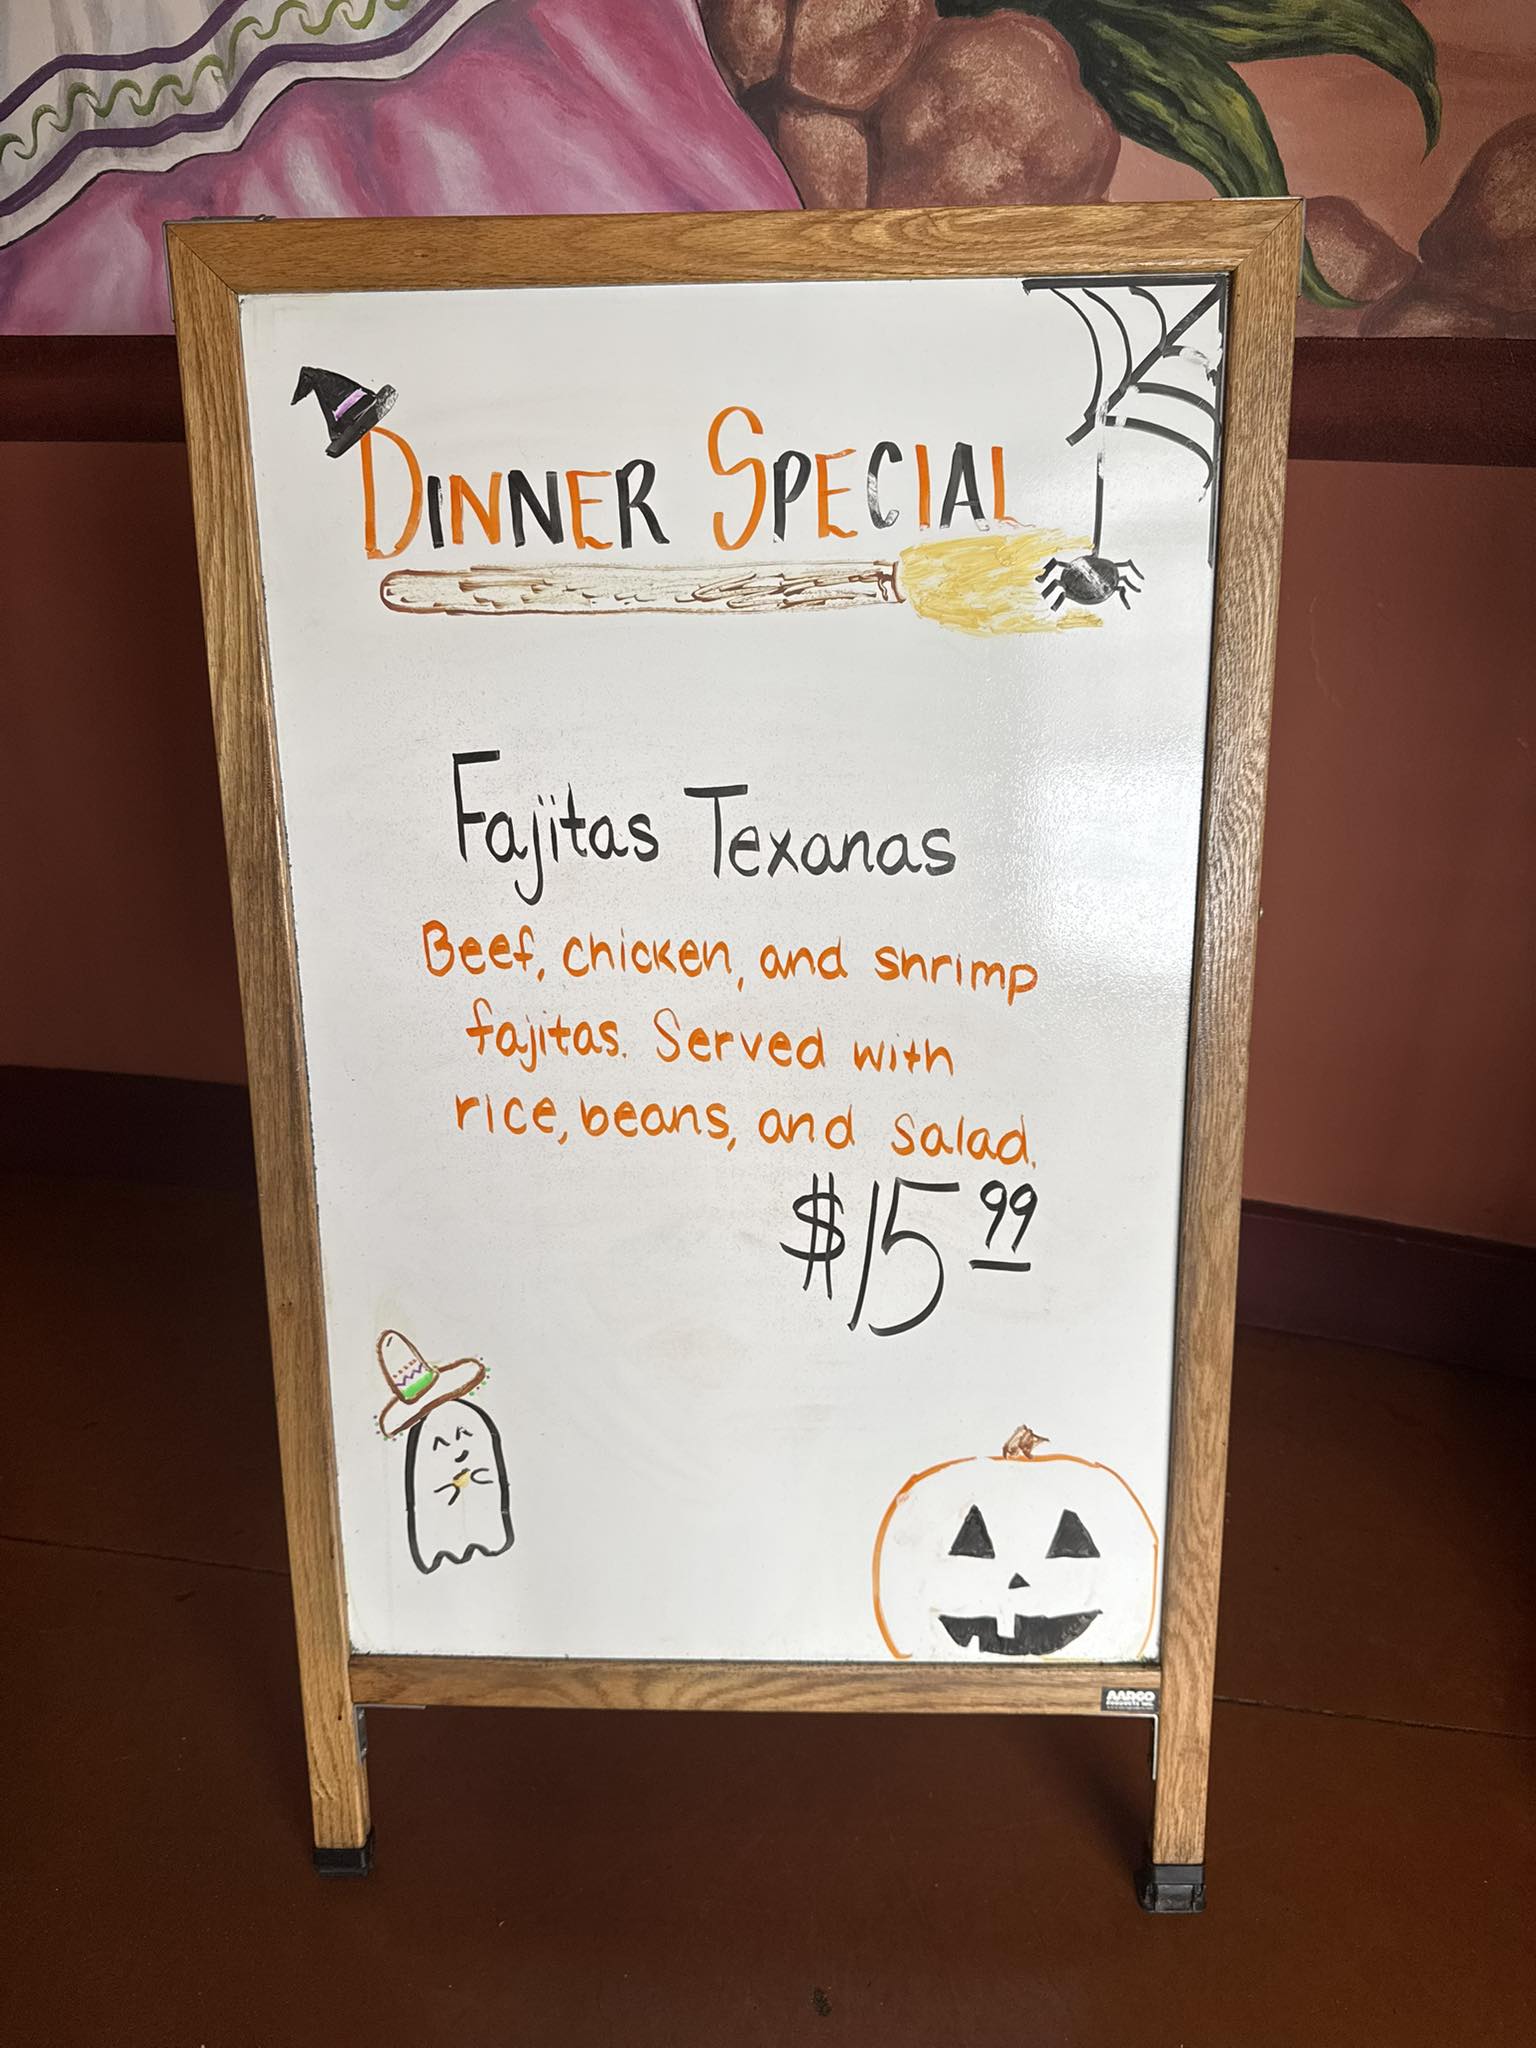 DINNER SPECIAL
Fajitas Texanas
Beef, chicken, and shrimp
fajitas. Served with
rice, beans, and salad.
$15 99
AARCO
PRODUCTS INC.